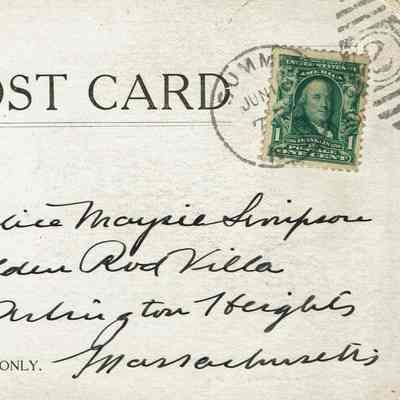 OST CARD
SUMM
JUN
7
UNITED STATES OF
AMERICA
FRANKLIN
POSTAGE
1 ONE CENT 1
lice Maysie Simpson
lden Rod Villa
Arlington Heights
Massachusetts
ONLY.